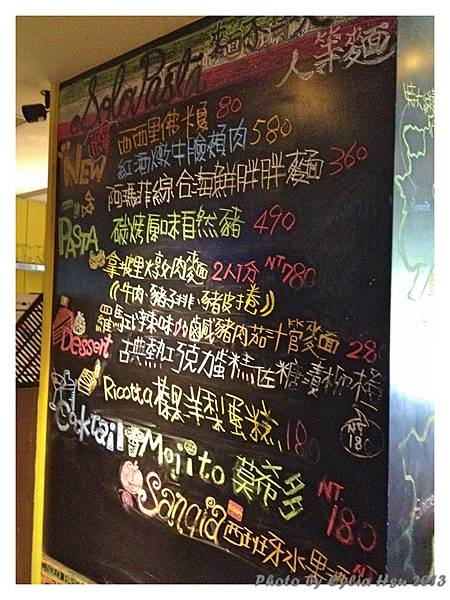 Solo Pasta
人筆麵
New 西西里佛卡夏 80
紅酒燉牛臉頰肉 580
阿瑪菲綜合海鮮胖胖麵 360
PASTA 碳烤原味自然豬 490
拿坡里燉肉麵 2人份 NT780
(牛肉、豬子排、豬皮捲)
羅馬式辣味鹹豬肉茄汁管麵 280
Dessert 古典熱巧克力蛋糕佐糖漬柳橙 NT180
Ricotta 羊梨蛋糕 180
Cocktail Mojito 莫希多 NT.180
Sangia 西班牙水果酒 NT
Photo by Cylia Hsu 2013